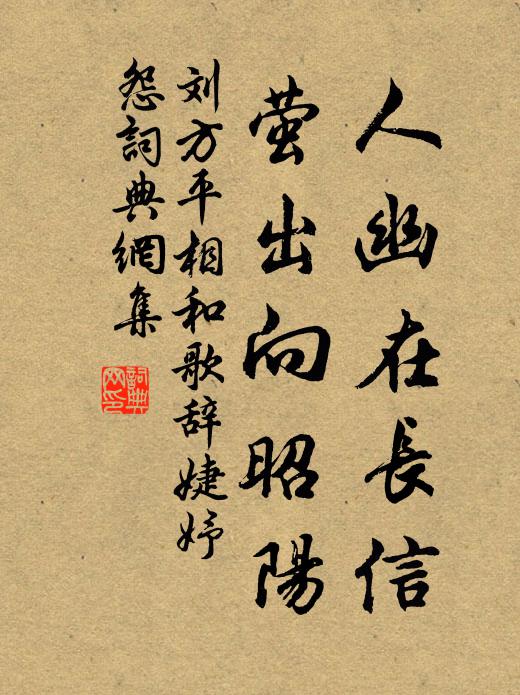 人幽在長信
萤出向昭陽
刘方平相和歌辞婕妤
怨詞典網集
詞典
网印